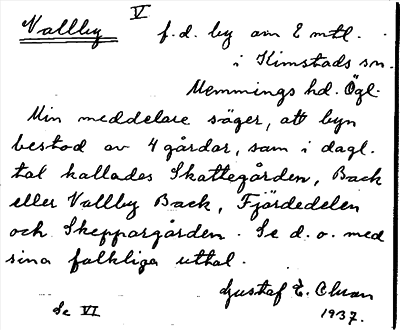 V
Vallby f.d. by om 2 mtl.
i Kimstads sn.
Memmings hd. Ögl.
Min meddelare säger, att byn
bestod av 4 gårdar, som i dagl.
tal kallades Skattegården, Back
eller Vallby Back, Fjärdedelen
och Skeppargården. Se d. o. med
sina folkliga uttal.
Gustaf E. Olsson
Se VI 1937.